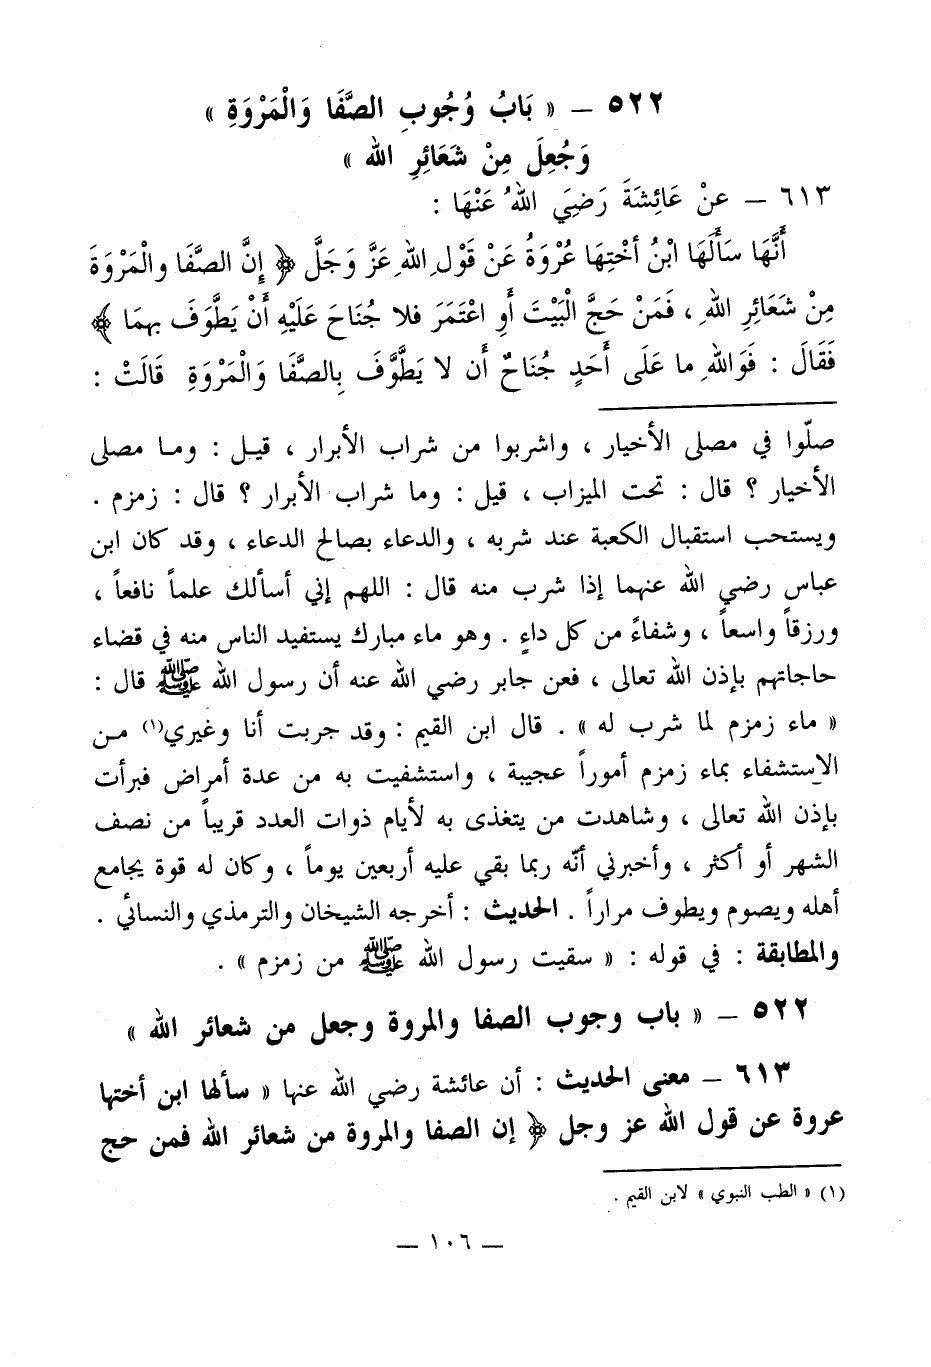 ٥٢٢ – « بَابُ وُجُوبِ الصَّفَا وَالْمَرْوَةِ »
وَجُعِلَ مِنْ شَعَائِرِ الله »
٦١٣ – عنْ عَائِشَةَ رَضِيَ اللهُ عَنْهَا :
أَنَّهَا سَأَلَهَا ابْنُ أخْتِهَا عُرْوَةُ عَنْ قَوْلِ اللهِ عَزَّ وَجَلَّ ﴿ إِنَّ الصَّفَا والْمَرْوَةَ
مِنْ شَعَائِرِ اللهِ ، فَمَنْ حَجَّ الْبَيْتَ أَوِ اعْتَمَرَ فلا جُنَاحَ عَلَيْهِ أَنْ يَطَّوَّفَ بهِمَا ﴾
فَقَالَ : فَوَاللهِ ما عَلَى أَحَدٍ جُنَاحٌ أَن لا يَطَّوَّفَ بِالصَّفَا وَالْمَرْوَةِ قَالَتْ :
صلّوا في مصلى الأخيار ، واشربوا من شراب الأبرار ، قيل : وما مصلى
الأخيار ؟ قال : تحت الميزاب ، قيل : وما شراب الأبرار ؟ قال : زمزم .
ويستحب استقبال الكعبة عند شربه ، والدعاء بصالح الدعاء ، وقد كان ابن
عباس رضي الله عنهما إذا شرب منه قال : اللهم إني أسألك علماً نافعاً ،
ورزقاً واسعاً ، وشفاءً من كل داءٍ . وهو ماء مبارك يستفيد الناس منه في قضاء
حاجاتهم بإذن الله تعالى ، فعن جابر رضي الله عنه أن رسول الله ﷺ قال :
« ماء زمزم لما شرب له » . قال ابن القيم : وقد جربت أنا وغيري(١) من
الاستشفاء بماء زمزم أموراً عجيبة ، واستشفيت به من عدة أمراض فبرأت
بإذن الله تعالى ، وشاهدت من يتغذى به لأيام ذوات العدد قريباً من نصف
الشهر أو أكثر ، وأخبرني أنّه ربما بقي عليه أربعين يوماً ، وكان له قوة يجامع
أهله ويصوم ويطوف مراراً . الحديث : أخرجه الشيخان والترمذي والنسائي .
والمطابقة : في قوله : « سقيت رسول الله ﷺ من زمزم » .
٥٢٢ – « باب وجوب الصفا والمروة وجعل من شعائر الله »
٦١٣ – معنى الحديث : أن عائشة رضي الله عنها « سألها ابن أختها
عروة عن قول الله عز وجل ﴿ إن الصفا والمروة من شعائر الله فمن حج
(١) « الطب النبوي » لابن القيم .
– ١٠٦ –